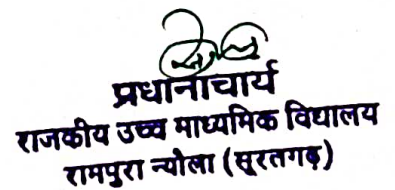 प्रधानाचार्य
राजकीय उच्च माध्यमिक विद्यालय
रामपुरा न्योला (सूरतगढ़)